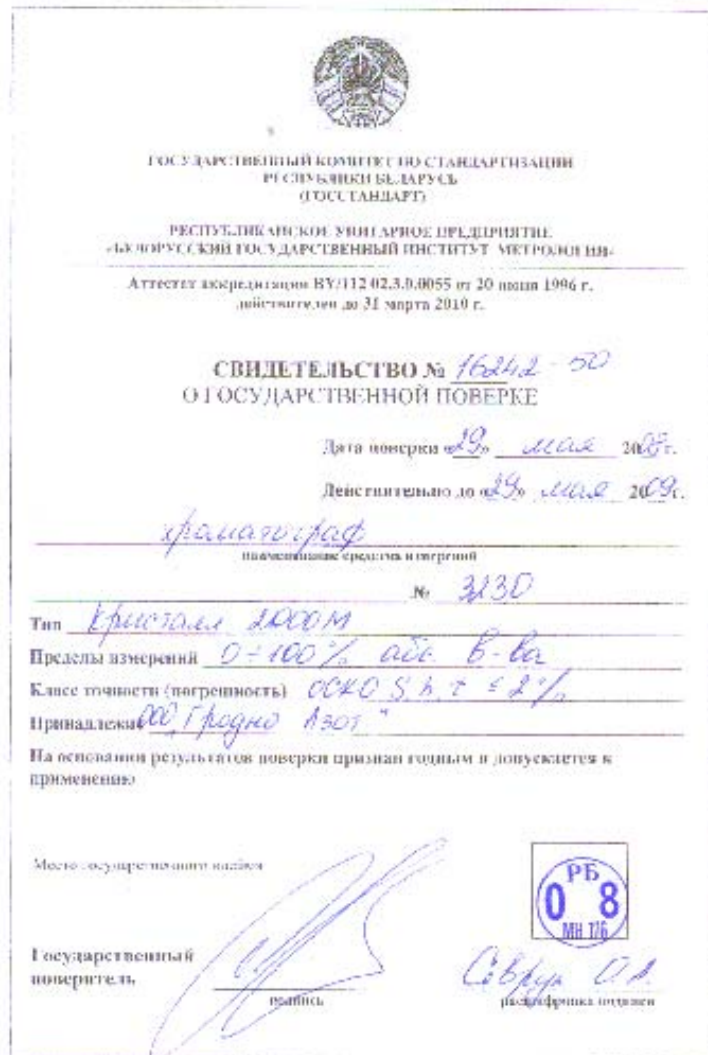 ГОСУДАРСТВЕННЫЙ КОМИТЕТ ПО СТАНДАРТИЗАЦИИ
РЕСПУБЛИКИ БЕЛАРУСЬ
(ГОССТАНДАРТ)
РЕСПУБЛИКАНСКОЕ УНИТАРНОЕ ПРЕДПРИЯТИЕ
«БЕЛОРУССКИЙ ГОСУДАРСТВЕННЫЙ ИНСТИТУТ МЕТРОЛОГИИ»
Аттестат аккредитации BY/112 02.3.0.0055 от 20 июня 1996 г.
действителен до 31 марта 2010 г.
СВИДЕТЕЛЬСТВО № 16242-50
О ГОСУДАРСТВЕННОЙ ПОВЕРКЕ
Дата поверки «29» мая 2008г.
Действительно до «29» мая 2009г.
хроматограф
наименование средства измерений
№ 3230
Тип Кристалл 2000М
Пределы измерений 0÷100% абс. в-ва
Класс точности (погрешность) ОСКО S, h, τ ≤ 2%
Принадлежит ООО „Гродно Азот"
На основании результатов поверки признан годным и допускается к
применению
Место государственного клейма
РБ
0 8
МН
Государственный
поверитель
подпись
расшифровка подписи